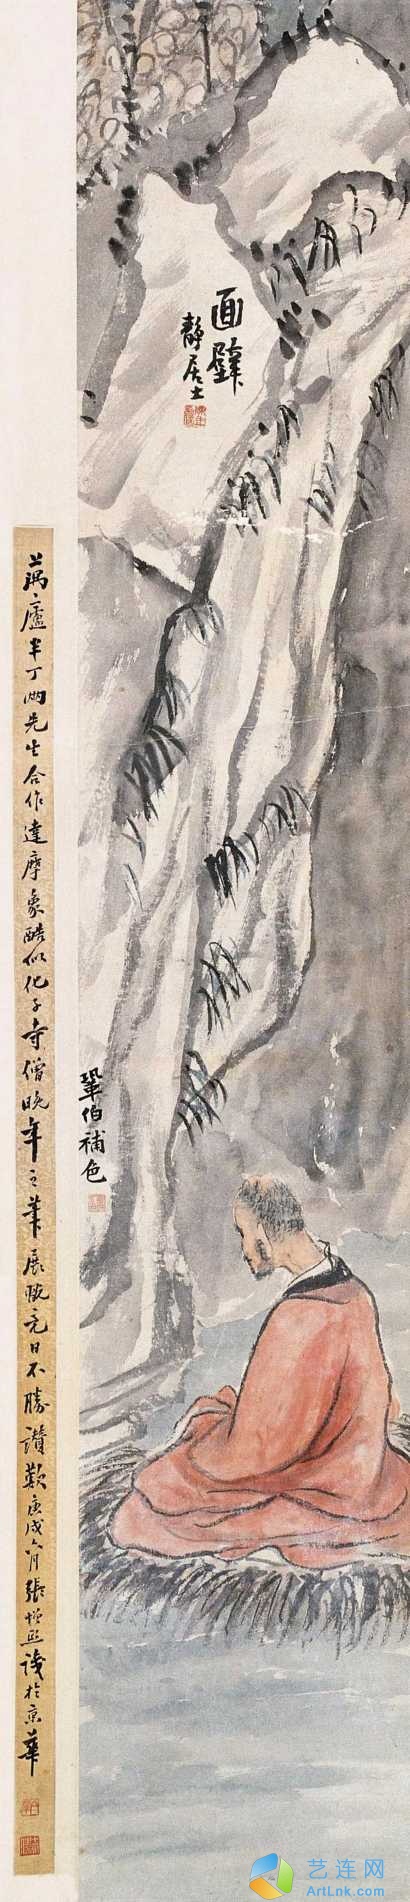 面壁
静居士
鞏伯補色
藕廬半丁兩先生合作達摩象酷似化子寺僧晚年之筆展玩竟日不勝讚歎庚戌六月張增熙識於京華
艺连网
ArtLnk.com